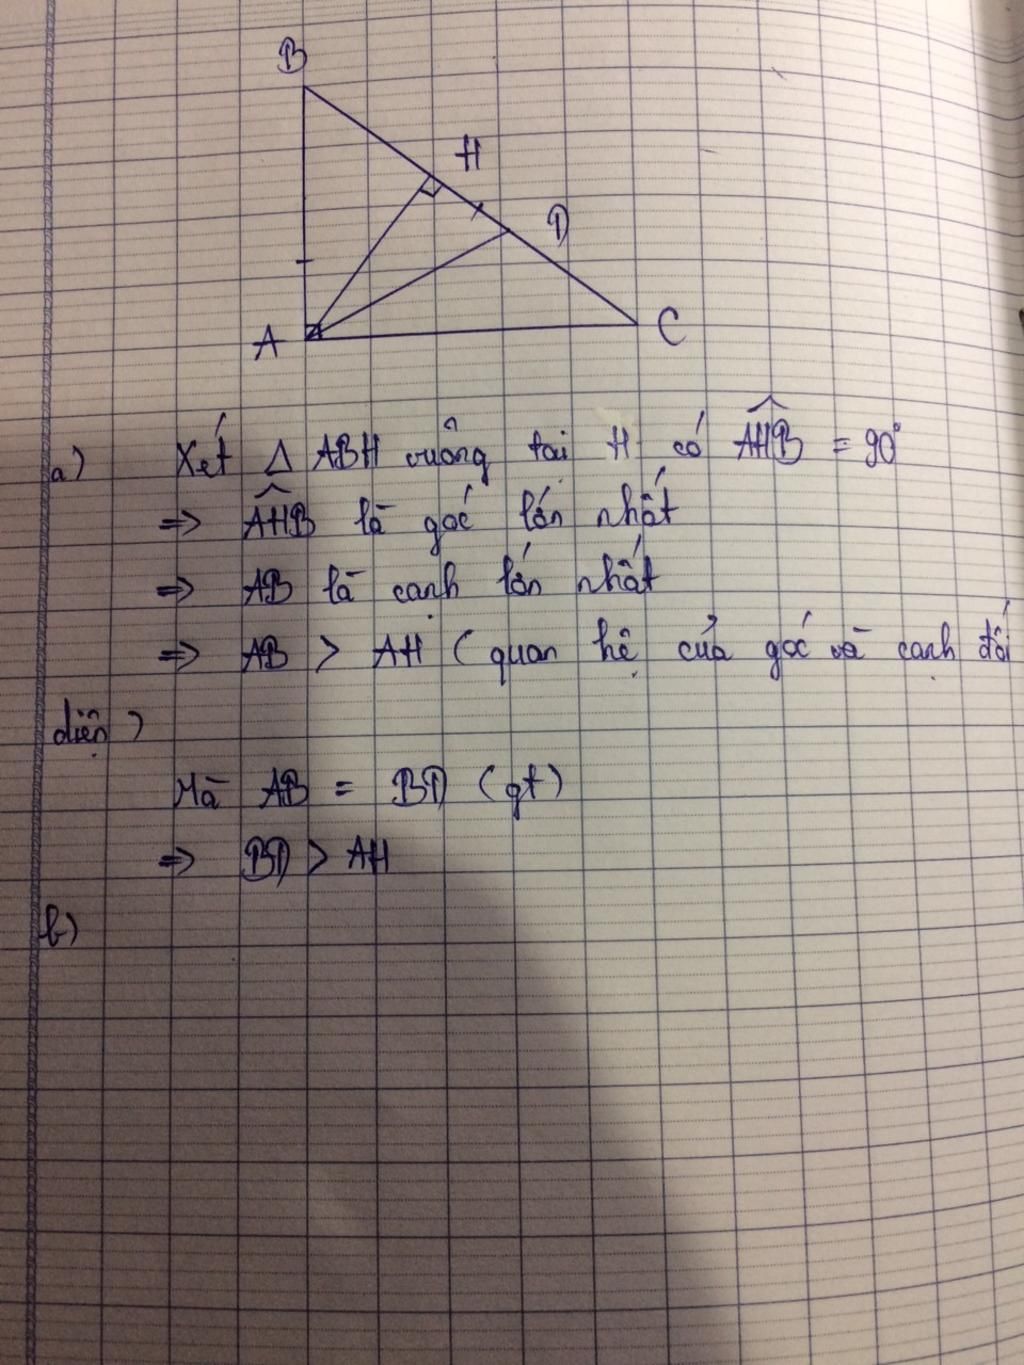 B
H
D
A
C
a) Xét Δ ABH vuông tại H có AHB = 90°
=> AHB là góc lớn nhất
=> AB là cạnh lớn nhất
=> AB > AH ( quan hệ của góc và cạnh đối
diện )
Mà AB = BD (gt)
=> BD > AH
b)